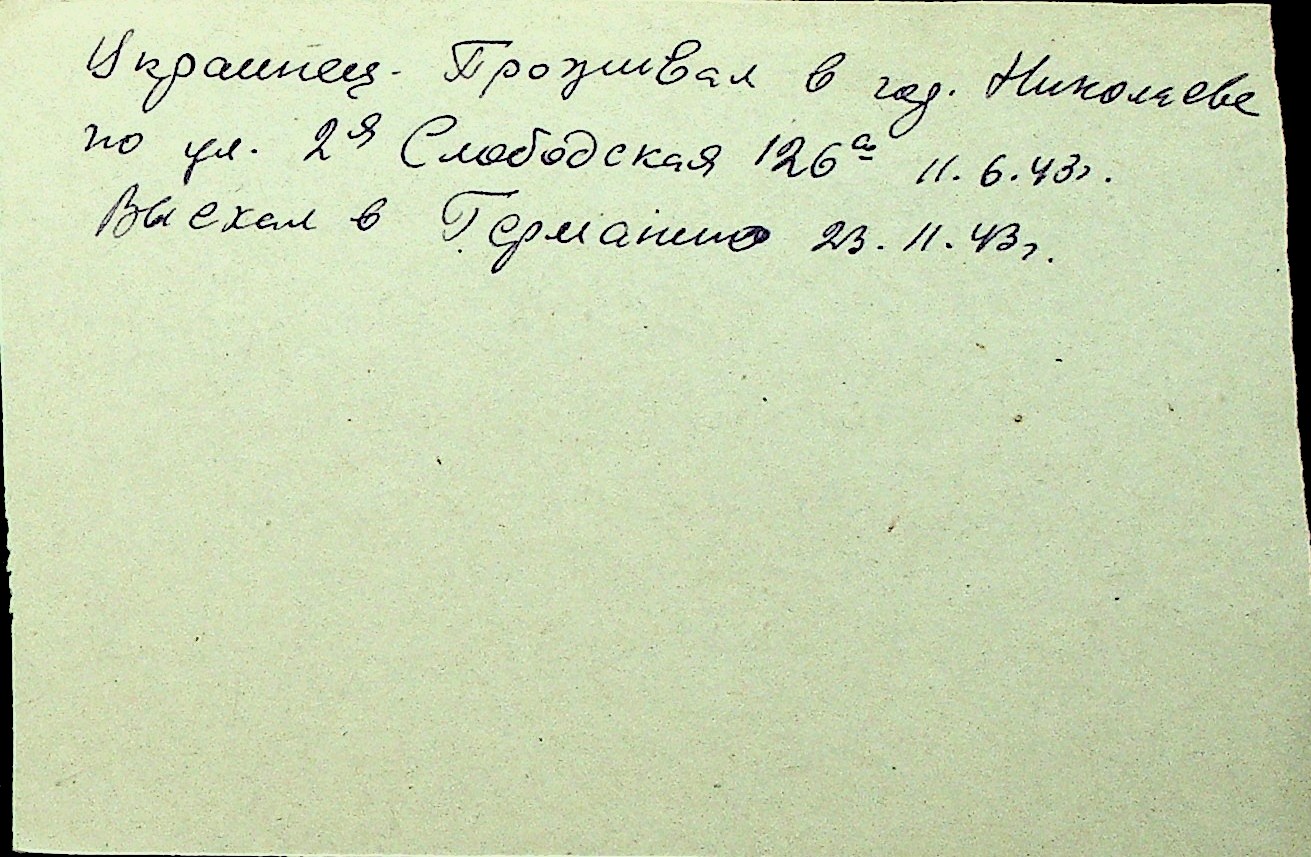 Украинец. Проживал в гор. Николаеве
по ул. 2я Слободская 126а 11.6.43г.
Выехал в Германию 23.11.43г.